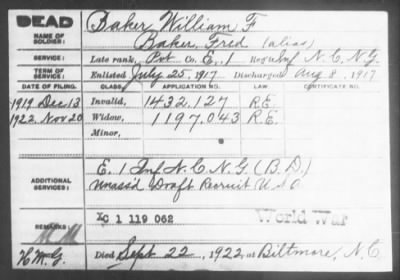 DEAD
NAME OF SOLDIER:
Baker William F
Baker, Fred (alias)
SERVICE:
Late rank, Pvt Co. E, 1 Reg't Inf N.C.N.G.
TERM OF SERVICE:
Enlisted July 25, 1917 Discharged Aug 8, 1917
DATE OF FILING. CLASS. APPLICATION NO. LAW. CERTIFICATE NO.
1919 Dec 13 Invalid, 1432.127 R.E.
1922 Nov 20 Widow, 1197.043 R.E.
Minor,
ADDITIONAL SERVICES:
E. 1 Inf N.C.N.G. (B.D.)
Unass'd Draft Recruit U S A
REMARKS:
XC 1 119 062 World War
H.M.G. Died Sept 22, 1922, at Biltmore, N.C.